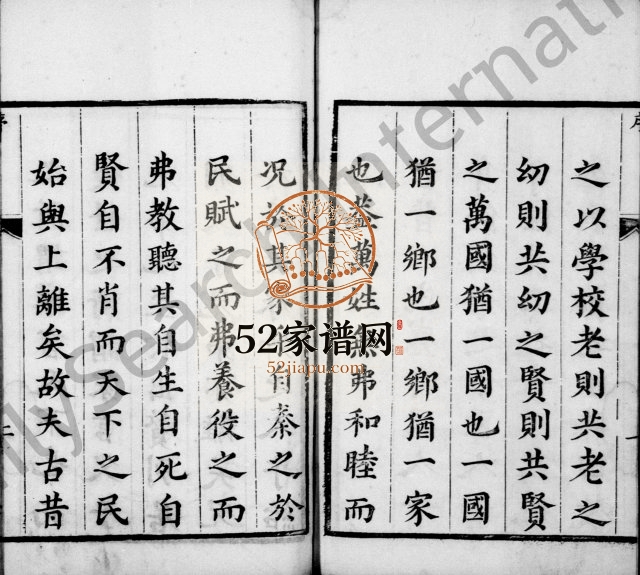 之以學校老則共老之
幼則共幼之賢則共賢
之萬國猶一國也一國
猶一鄉也一鄉猶一家
也萬姓無弗和睦而
况其家自秦之於
民賦之而弗養役之而
弗教聽其自生自死自
賢自不肖而天下之民
始與上離矣故夫古昔
52家谱网
52jiapu.com